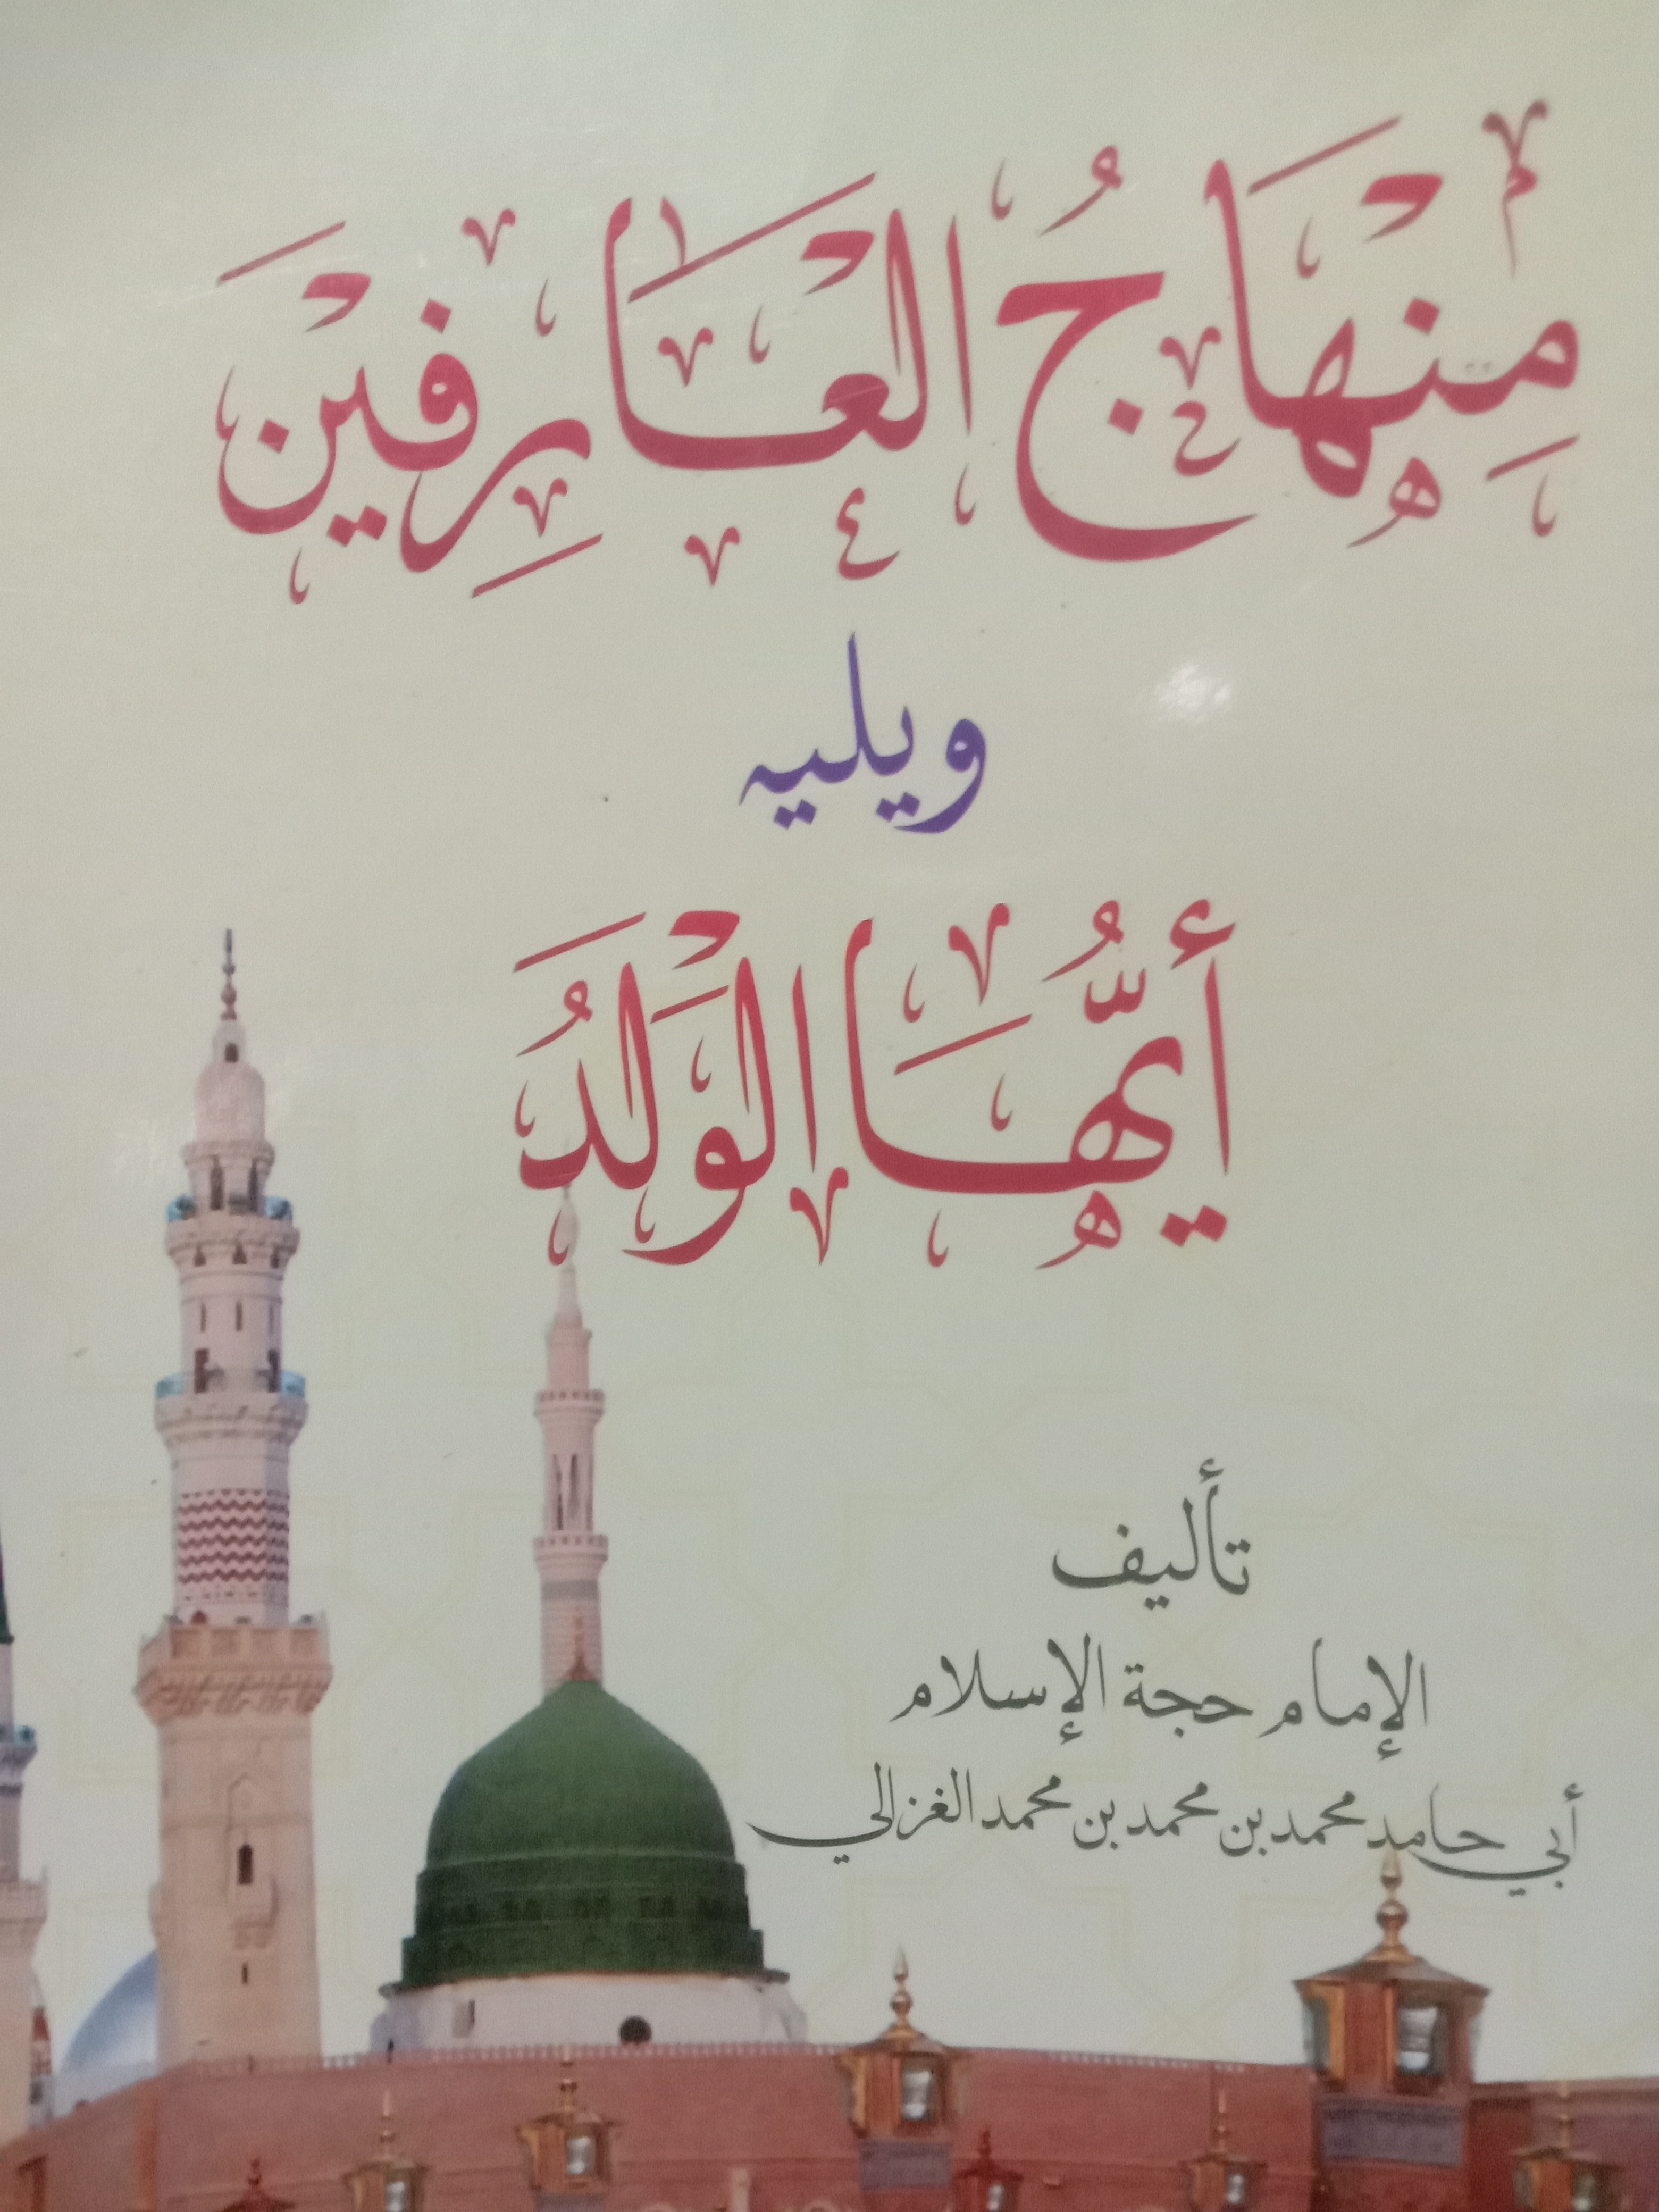 مِنْهَاجُ الْعَارِفِيْنَ
ويليه
أَيُّهَا الْوَلَدُ
تأليف
الإمام حجة الإسلام
أبي حامد محمد بن محمد بن محمد الغزالي